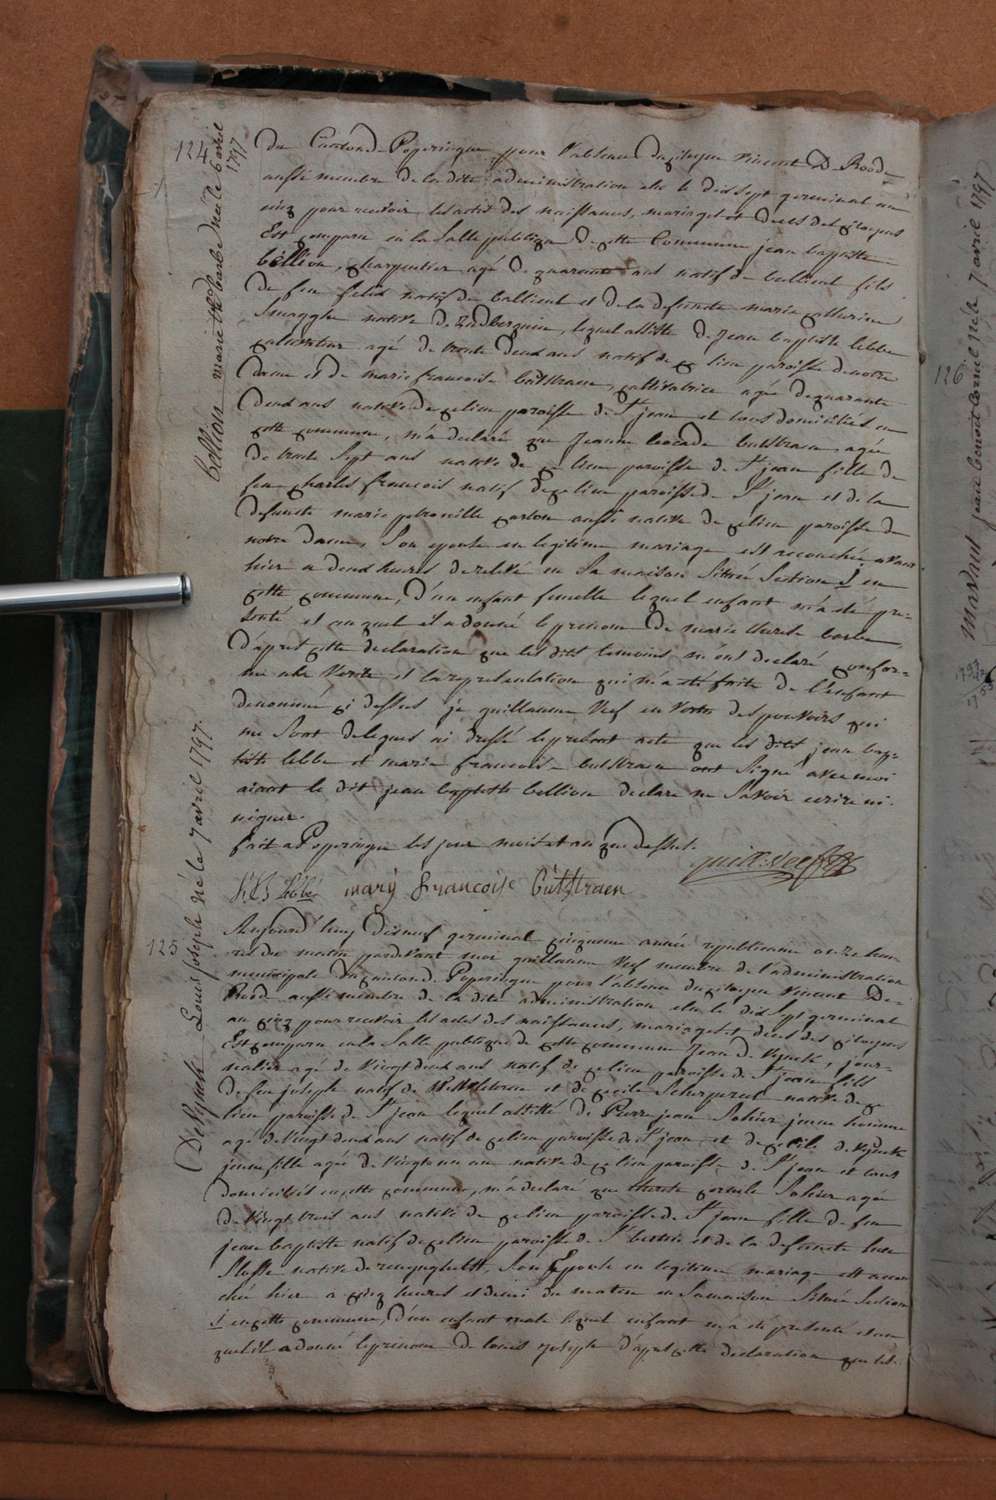 124
bellion marie th. barbe née le 6 avril 1797
du Canton de Poperingue pour l'absence du citoyen vincent De Roode
aussi membre de la dite administration elu le dix sept germinal an
cinq pour recevoir les actes des naissances, mariages et deces des citoyens
Est comparu en la salle publique de cette Commune jean baptiste
bellion, charpentier agé de quarante ans natif de bailleul fils
de feu felix natif de bailleul et de la defuncte marie catherine
Snaggle native de Zudberquin, lequel assisté de jean baptiste lebbe
cultivateur agé de trente deux ans natif de ce lieu paroisse de notre
dame et de marie francoise butstraen, cultivatrice agée de quarante
deux ans native de ce lieu paroisse de St jean et tous domiciliés en
cette commune, m'a declaré que jeanne leocade butstraen, agée
de trente sept ans native de ce lieu paroisse de St jean fille de
feu charles francois natif de ce lieu paroisse de St jean et de la
defuncte marie petronille carton aussi native de ce lieu paroisse de
notre dame, son epouse en legitime mariage est accouchée avant
hier a deux heures de relevé en sa maison sitûée section I en
cette commune, d'un enfant femelle lequel enfant m'a été pre-
senté et au quel il a donné le prenom de marie therese barbe
d'après cette declaration que les dits temoins m'ont declaré confor-
me a la verité et la representation qui m'a été faite de l'enfant
denommé ci dessus je guillaume Vef en vertu des pouvoirs qui
me sont delegués ai dressé le present acte que les dits jean bap-
tiste lebbe et marie francoise butstraen ont signé avec moi
aiant le dit jean baptiste bellion declaré ne savoir ecrire ni
signer.
fait a Poperingue les jour mois et an que dessus.
guill: Vef
J B Lebbe mary francoise Butstraen
125
De Rynck Louis joseph né le 7 avril 1797.
Aujourd'huy dixneuf germinal cinquieme année republicaine onze heu-
res du matin pardevant moi guillaume Vef membre de l'administration
municipale du canton de Poperingue pour l'absence du citoyen vincent De-
Rood aussi membre de la dite administration elu le dix sept germinal
an cinq pour recevoir les actes des naissances, mariages et deces des citoyens
Est comparu en la salle publique de cette commune jean de Rynck, jour-
nalier agé de vingt deux ans natif de ce lieu paroisse de St jean fils
de feu joseph natif de et de cecile Scherpereel native de ce
lieu paroisse de St jean lequel assisté de Pierre jean Sohier jeune homme
agé de vingt deux ans natif de ce lieu paroisse de St jean et de cecile de Rynck
jeune fille agée de vingt un an native de ce lieu paroisse de St jean et tous
domiciliés en cette commune, m'a declaré que therese cornile Sohier agée
de vingt trois ans native de ce lieu paroisse de St jean fille de feu
jean baptiste natif de ce lieu paroisse de St bertin et de la defuncte
native de reninghelst, son Epouse en legitime mariage est accou-
chée hier a cinq heures et demi du matin en sa maison sitûée section
I en cette commune, d'un enfant male lequel enfant m'a été presenté et au
quel il a donné le prenom de louis joseph d'après cette declaration que les
126
jean benoit né le 7 avril 1797